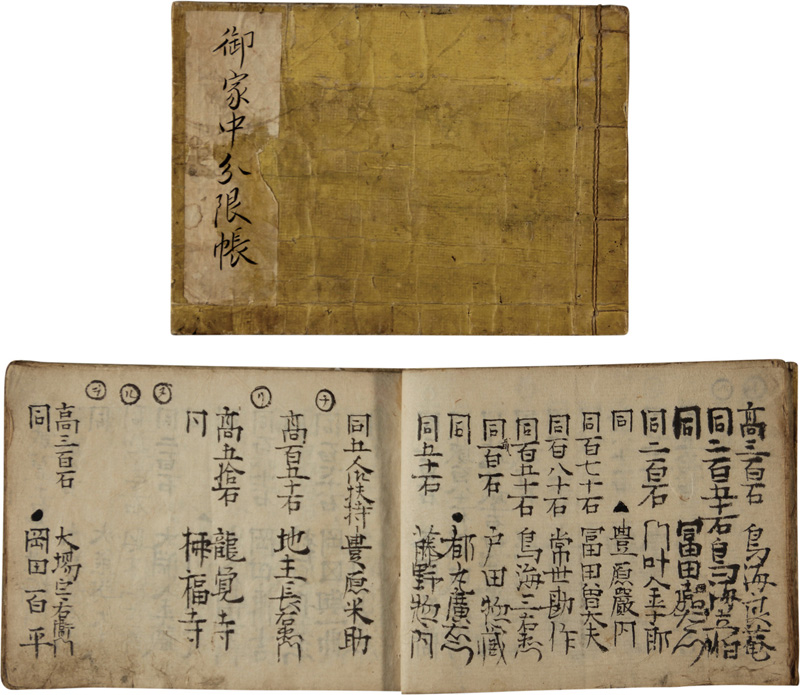 御家中分限帳
高三百石 鳥海
同二百五十石 鳥海
同 冨田
同二百石 門叶金十郎
同 ▲豊原嚴内
同百七十石 冨田曽大夫
同百八十石 常世勘作
同百五十石 鳥海三右衛門
同百石 戸田惣蔵
同 ●都丸
同五十石 藤野惣内
㋠
同五人扶持 豊原米助
高百五十石 地主長右衛門
㋷
高五拾石 龍覚寺
同 福寺
㋦
㋸
㋾
高三百石 大場右衛門
同 ●岡田百平